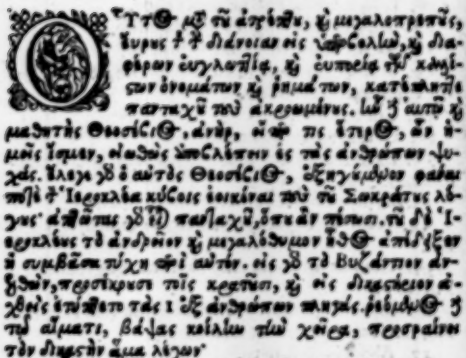 Οὗτος μετὰ τοῦ ἀτρέπτου, καὶ μεγαλοπρεποῦς,
εὗρος τὴν διάνοιαν εἰς ὑπερβολὴν, καὶ δια-
φέρων εὐγλωττίᾳ, καὶ εὐπορίᾳ τῶν καλλί-
στων ὀνομάτων καὶ ῥημάτων, κατέπληττε
πανταχοῦ τοὺς ἀκροωμένους. ἦν δ' αὐτοῦ καὶ
μαθητὴς Θεοσέβιος, ἀνὴρ, εἴπερ τις ἕτερος, ὧν ἡ-
μεῖς ἴσμεν, εἰωθὼς ἀποβλέπειν ἐς τὰς ἀνθρώπων ψυ-
χάς. ἔλεγε γὰρ ὁ αὐτὸς Θεοσέβιος, ἐξηγούμενον φάναι
ποτὲ τὸν Ἱεροκλέα κύβοις ἐοικέναι τοὺς τοῦ Σωκράτους λό-
γους· ἀπτῶτας γὰρ εἶναι πανταχοῦ, ὅπῃ ἂν πέσωσι. τοῦ δὲ Ἱ-
εροκλέους τὸ ἀνδρεῖον καὶ μεγαλόθυμον ἦθος ἀπέδειξεν
ἡ συμβᾶσα τύχη περὶ αὐτόν. εἰς γὰρ τὸ Βυζάντιον ἀν-
ελθὼν, προσέκρουσε τοῖς κρατοῦσι, καὶ εἰς δικαστήριον ἀ-
χθεὶς ἐτύπτετο τὰς ἐξ ἀνθρώπων πληγάς. ῥεόμενος δὲ
τῷ αἵματι, βάψας κοίλην τὴν χεῖρα, προσραίνει
τὸν δικαστὴν ἅμα λέγων·